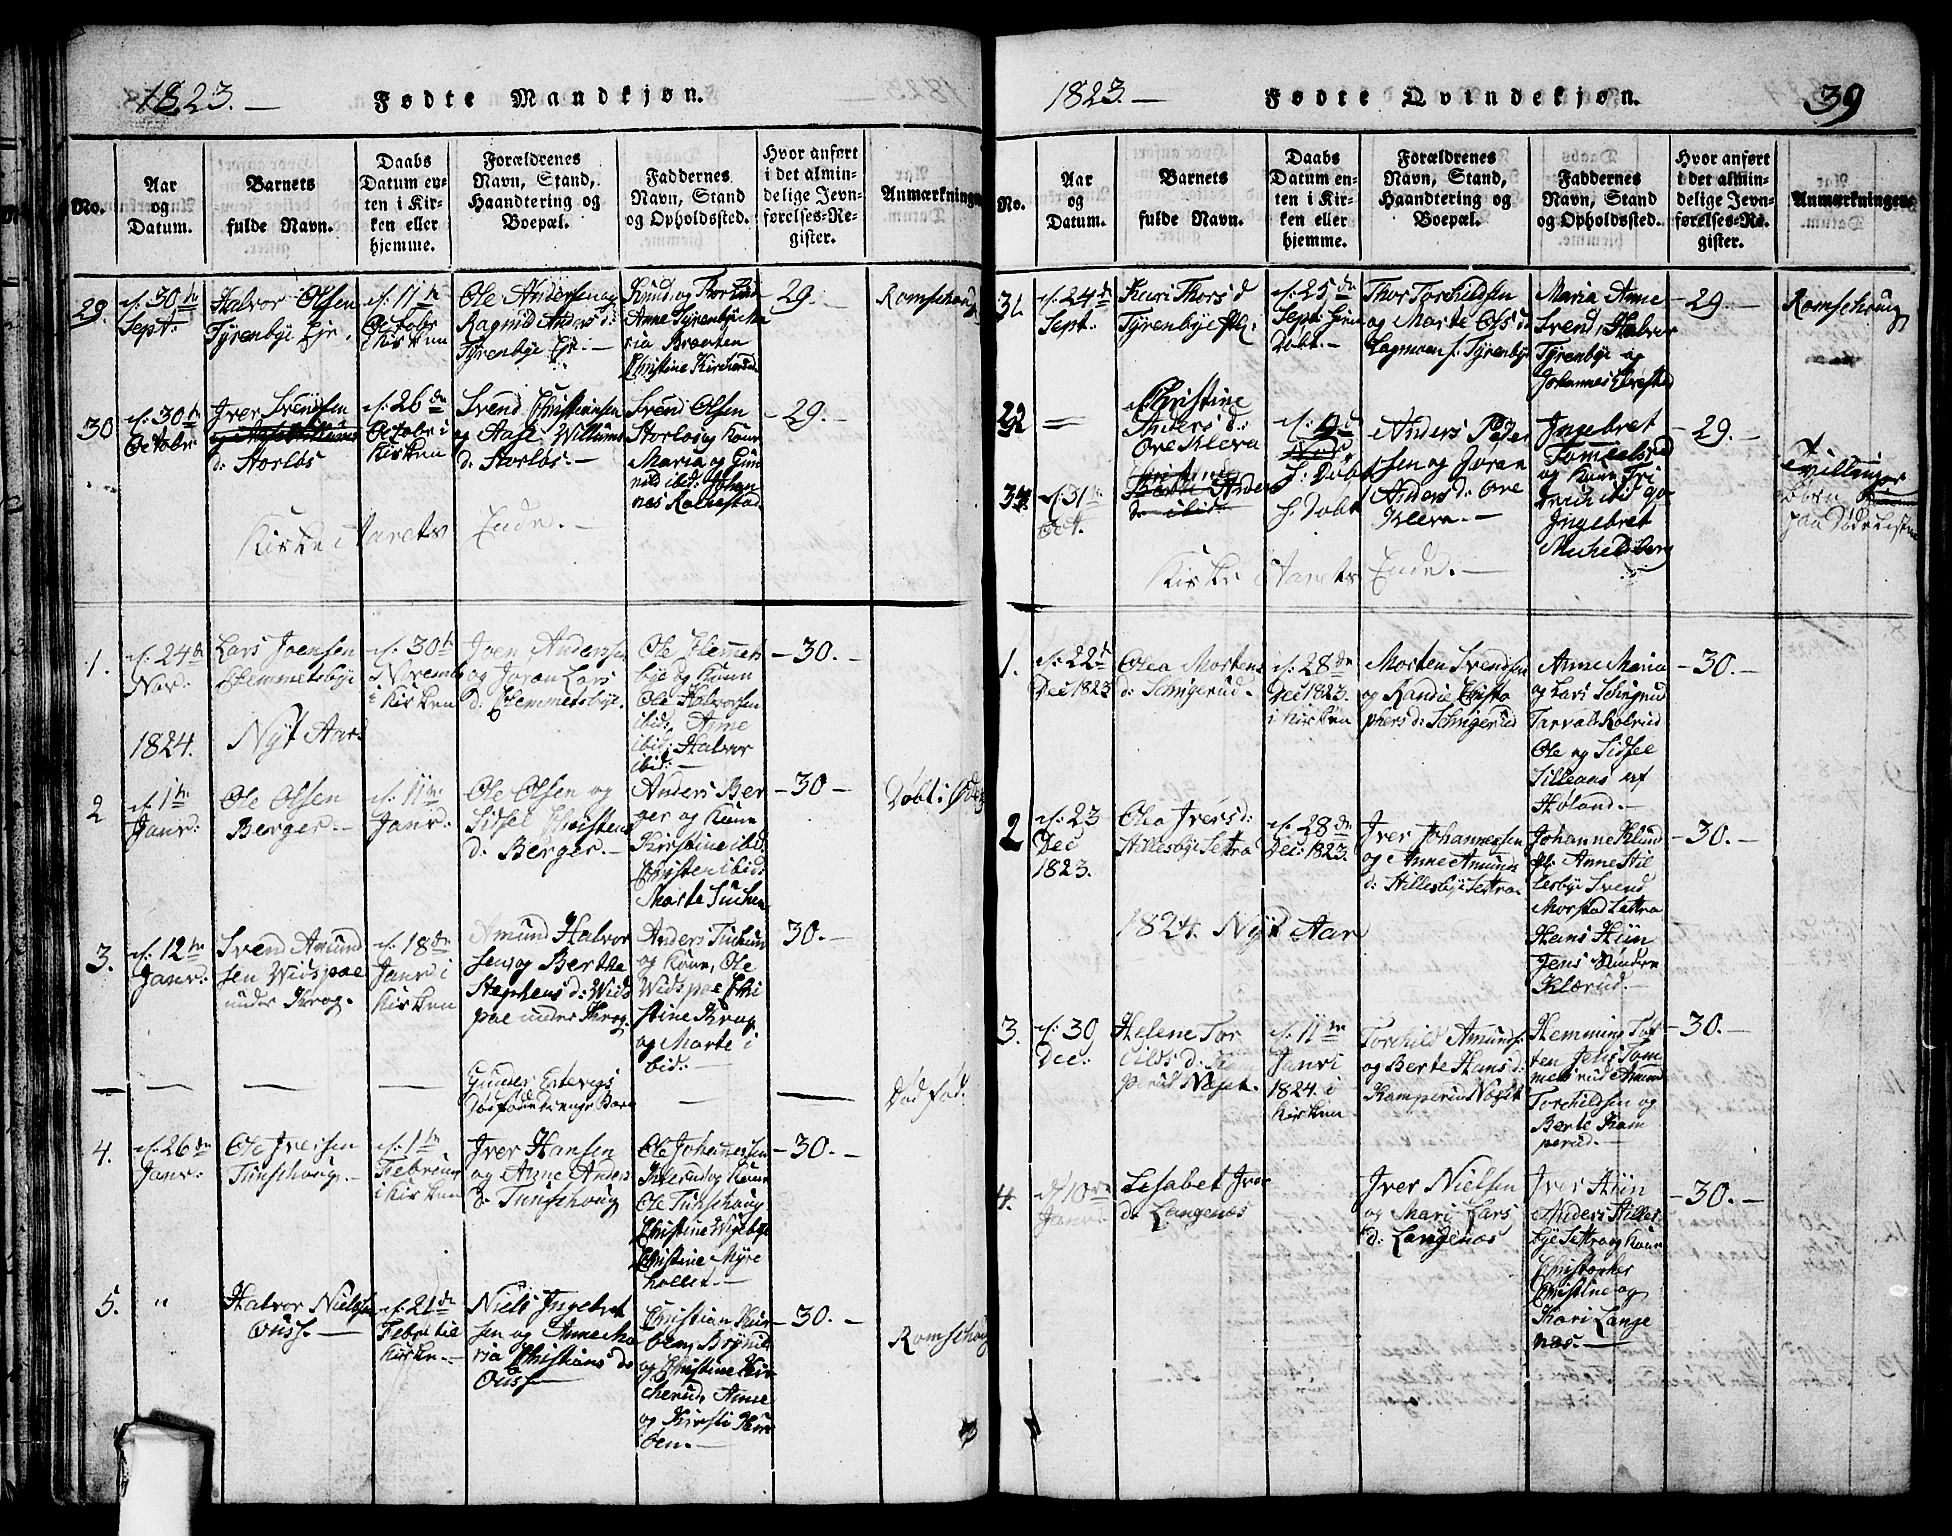 1823.—
Fødte Mandkjøn.
No.
Aar
og
Datum.
Barnets
fulde Navn.
Daabs
Datum en-
ten i Kir-
ken eller
hjemme.
Forældrenes
Navn, Stand,
Haandtering og
Boepæl.
Faddernes
Navn, Stand
og Opholdssted.
Hvor anført
i det almin-
delige Jevn-
førelses-Re-
gister.
Anmærkninger
29.
d: 30te
Sept:
Halvor Olsen
Tyrenbye Eje.
d: 11te
Octobr
i Kirken
Ole Andersen og
Ragnild Anders d:
Tyrenbye Eje.—
Knud og
Anne Tyrenbye Ma
ria Braaten
Christine Kircherud
29.—
Romschoug
30
d: 30te
Octobr
Iver Svendsen
d: Storløs
d: 26de
Octobr i
Kirken
Svend Christiansen
og Aase Willums
d: Storløs.—
Svend Olsen
Storløs og Kone
Maria og Gun
nild ibid: Johan
nes Rachestad
29.—
Kirke Aarets Ende.—
1.
d: 24de
Nov:
Lars Joensen
Hemmetsbye
d: 30te
Novemb
i Kirken
Joen Andersen
og Joran Lars
d. Hemmetsbye.
Ole Hemmets
bye og Kone
Ole Halvorsen
ibid: Anne
ibid: Halvor
ibid:—
30.—
1824. Nyt Aar.
2
d: 1te
Janr:
Ole Olsen
Berger.—
d: 11te
Janr:
Ole Olsen og
Sidsel Christens
d: Berger.—
Anders Ber
ger og Kone
Kristine ibid.
Christen ibid:
Marte Tuchen
30—
Døbt i
3.
d: 12te
Janr:
Svend Amund
sen Widspae
under Krog.
d: 18de
Janr i
Kirken
Amund Halvor
sen og Berthe
Stephens d: Wids
pae under Krog.
Anders Tuchen
og Kone, Ole
Widspae Chri
stine Krog
og Marte i
bid:—
30.—
—
—
—
Gunder
Dødfødte Drenge Barn
—
—
Død fød.
4.
d: 26de
Janr:
Ole Iversen
Tunschoug.—
d: 1te
Februar
i Kirken
Iver Hansen
og Anne Anders
d: Tunschoug
Ole Johannessen
og Kone
Ole Tunschoug
Christine
Christine Myre
30.—
5.
"
Halvor Nielsen
Ouss.—
d: 21de
Febr til
Kirke.—
Niels Ingebret
sen og Anne Ma
ria Christians d:
Ouss—
Christian Kur
øen,
og Christine Kir
cherud, Anne
og Kirsti Kur
øen.—
30.—
Romschoug
1823.—
Fødte Qvindekjøn.
39
No.
Aar
og
Datum.
Barnets
fulde Navn.
Daabs
Datum en-
ten i Kir-
ken eller
hjemme.
Forældrenes
Navn, Stand,
Haandtering og
Boepæl.
Faddernes
Navn, Stand
og Opholdssted.
Hvor anført
i det almin-
delige Jevn-
førelses-Re-
gister.
Anmærkninger
31
d: 24de
Sept:
Kari Thors d
Tyrenbye
d: 25de
Sept:
Døbt.—
Thor Torchildsen
og Marte Ols d:
Tyrenbye
Maria Anne
Svend, Halvor
Tyrenbye og
Johannes
29.—
Romschoug
32
=
Christine
Anders d:
Øre Kleva
H: Døbt
Anders Peder
sen og Joran
Anders d: Øre
Kleva.—
Ingebret
og Kone
Ingebret
Michelsberg
29.—
Tvillinger
Børn
paa Dødelisten
33
d: 31te
Oct.
H: Døbt
Kirke Aarets Ende.—
1.
d: 22de
Dec 1823
Olea Mortens
d: Schigerud.
d: 28de
Dec 1823.
i Kirken
Morten Svendsen
og Randie Christo
phers d: Schigerud
Anne Maria
og Lars Schigerud
Tarvald Kolrud
Ole og Sidsel
af
Høland.—
30.—
2
d: 23
Dec
1823.
Olea Ivers d:
Stillesbye Settra
d: 28de
Dec: 1823.
Iver Johannessen
og Anne Amunds
d: Stillesbye Settra.
Johanne Klund
Anne Stil
lesbye Svend
Morstad Settra
Hans Hiin
Jens
Klærud.—
30.—
1824. Nyt Aar
3.
d: 30
Dec:
Helene Tor
childs d:
d: 11te
Janr i
1824. i
Kirken
Torchild Amunds:
og Berte Hans d:
Kamperud
Hemming Tof
ten Jens Tom
melsrud Amund
Torchildsen og
Berte Kam
perud.—
30.—
4.
d: 10de
Janr:
Lisabet Iver
d: Langenæs
Iver Nielsen
og Mari Lars
d: Langenæs
Iver Hiin
Anders Stilles
bye Settra og Kone
Christopher
Christine og
Kari Lange
næs.—
30.—